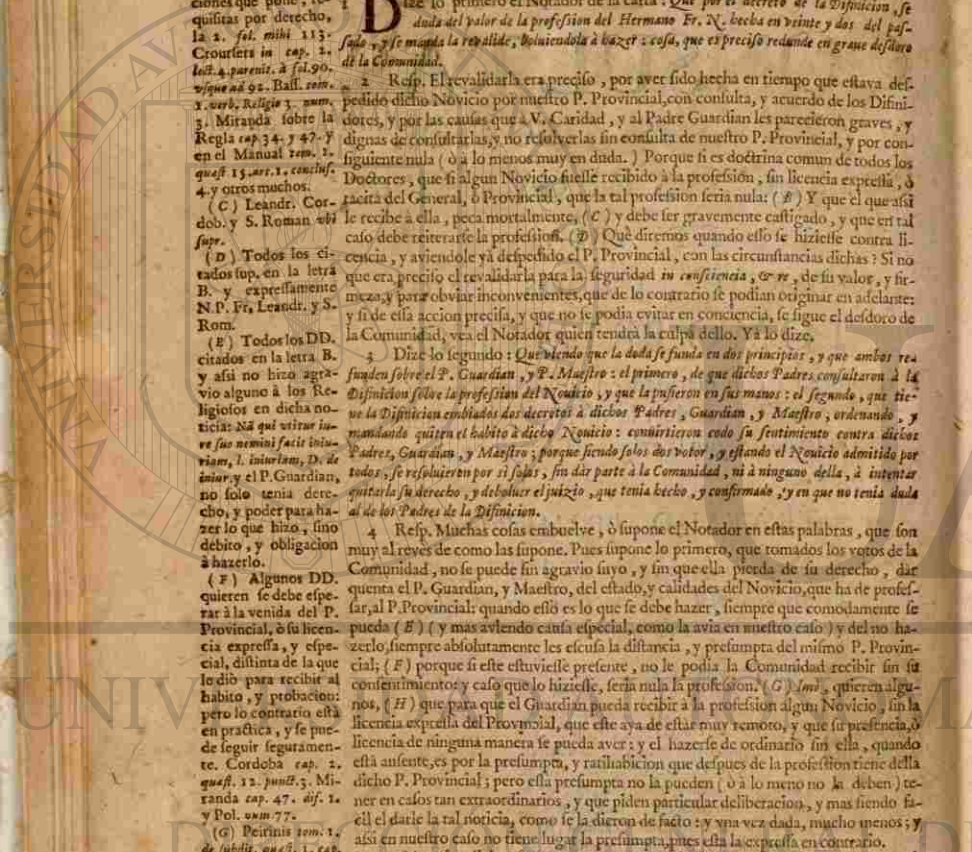 ciones que pone, re-
quisitas por derecho,
la 2. fol. mihi 113.
Croursers in cap. 2.
lect. 4. parenit. à fol. 90.
vsque ad 92. Bass. tom.
1. verb. Religio 3. num.
3. Miranda sobre la
Regla cap 34. y 47. y
en el Manual tom. 1.
quæst 15. art. 1. conclus.
4. y otros muchos.
(C) Leandr. Cor-
dob. y S. Roman vbi
supr.
(D) Todos los ci-
tados sup. en la letra
B. y expressamente
N.P. Fr, Leandr. y S.
Rom.
(E) Todos los DD.
citados en la letra B.
y assi no hizo agra-
vio alguno à los Re-
ligiosos en dicha no-
ticia: Nã qui vtitur iu-
re suo nemini facit iniu-
riam, l. iniuriam, D. de
iniur. y el P. Guardian,
no solo tenia dere-
cho, y poder para ha-
zer lo que hizo, sino
debito, y obligacion
à hazerlo.
(F) Algunos DD.
quieren se debe espe-
rar à la venida del P.
Provincial, ò su licen-
cia expressa, y espe-
cial, distinta de la que
le diò para recibir al
habito, y probacion:
pero lo contrario està
en practica, y se pue-
de seguir seguramen-
te. Cordoba cap. 2.
quæst. 12. punct. 3. Mi-
randa cap. 47. dif. 1.
y Pol. num 77.
(G) Peirinis tom. 1.
de subdit. quæst. 1. cap.
1 Dize lo primero el Notador de la carta: Que por el decreto de la Difinicion, se
duda del valor de la profession del Hermano Fr. N. hecha en veinte y dos del pas-
sado, y se manda la revalide, boluiendola à hazer: cosa, que es preciso redunde en graue desdoro
de la Comunidad.
2 Resp. El revalidarla era preciso, por aver sido hecha en tiempo que estava des-
pedido dicho Novicio por nuestro P. Provincial, con consulta, y acuerdo de los Difini-
dores, y por las causas que à V. Caridad, y al Padre Guardian les parecieron graves, y
dignas de consultarlas, y no resolverlas sin consulta de nuestro P. Provincial, y por con-
siguiente nula (ò à lo menos muy en duda.) Porque si es doctrina comun de todos los
Doctores, que si algun Novicio fuesse recibido à la profession, sin licencia expressa, ò
tacita del General, ò Provincial, que la tal profession seria nula: (B) Y que el que assi
le recibe à ella, peca mortalmente, (C) y debe ser gravemente castigado, y que en tal
caso debe reiterarse la profession. (D) Què diremos quando esso se hiziesse contra li-
cencia, y aviendole yà despedido el P. Provincial, con las circunstancias dichas? Si no
que era preciso el revalidarla para la seguridad in consciencia, & re, de su valor, y fir-
meza, y para obviar inconvenientes, que de lo contrario se podian originar en adelante:
y si de esta accion precisa, y que no se podia evitar en conciencia, se sigue el desdoro de
la Comunidad, vea el Notador quien tendrà la culpa dello. Yà lo dize.
3 Dize lo segundo: Que viendo que la duda se funda en dos principios, y que ambos re-
funden sobre el P. Guardian, y P. Maestro: el primero, de que dichos Padres consultaron à la
Difinicion sobre la profession del Nouicio, y que la pusieron en sus manos: el segundo, que tie-
ne la Difinicion embiados dos decretos à dichos Padres, Guardian, y Maestro, ordenando, y
mandando quiten el habito à dicho Nouicio: conuirtieron todo su sentimiento contra dichos
Padres, Guardian, y Maestro; porque siendo solos dos votos, y estando el Nouicio admitido por
todos, se resoluieron por si solos, sin dár parte à la Comunidad, ni à ninguno della, à intentar
quitarla su derecho, y deboluer el juizio, que tenia hecho, y confirmado, y en que no tenia duda
al de los Padres de la Difinicion.
4 Resp. Muchas cosas embuelve, ò supone el Notador en estas palabras, que son
muy al revès de como las supone. Pues supone lo primero, que tomados los votos de la
Comunidad, no se puede sin agravio suyo, y sin que ella pierda de su derecho, dár
quenta el P. Guardian, y Maestro, del estado, y calidades del Novicio, que ha de profes-
sar, al P. Provincial: quando esso es lo que se debe hazer, siempre que comodamente se
pueda (E) (y mas aviendo causa especial, como la avia en nuestro caso) y del no ha-
zerlo, siempre absolutamente les escusa la distancia, y presumpta del mismo P. Provin-
cial; (F) porque si este estuviesse presente, no le podia la Comunidad recibir sin su
consentimiento: y caso que lo hiziesse, seria nula la profession. (G) Imò, quieren algu-
nos, (H) que para que el Guardian pueda recibir à la profession algun Novicio, sin la
licencia expressa del Provincial, que este aya de estàr muy remoto, y que su presencia, ò
licencia de ninguna manera se pueda aver: y el hazerse de ordinario sin ella, quando
està ausente, es por la presumpta, y ratihabicion que despues de la profession tiene della
dicho P. Provincial; pero essa presumpta no la pueden (ò à lo meno no la deben) te-
ner en casos tan extraordinarios, y que piden particular deliberacion, y mas siendo fa-
cil el darle la tal noticia, como se la dieron de facto: y vna vez dada, mucho menos; y
assi en nuestro caso no tiene lugar la presumpta, pues està la expressa en contrario.